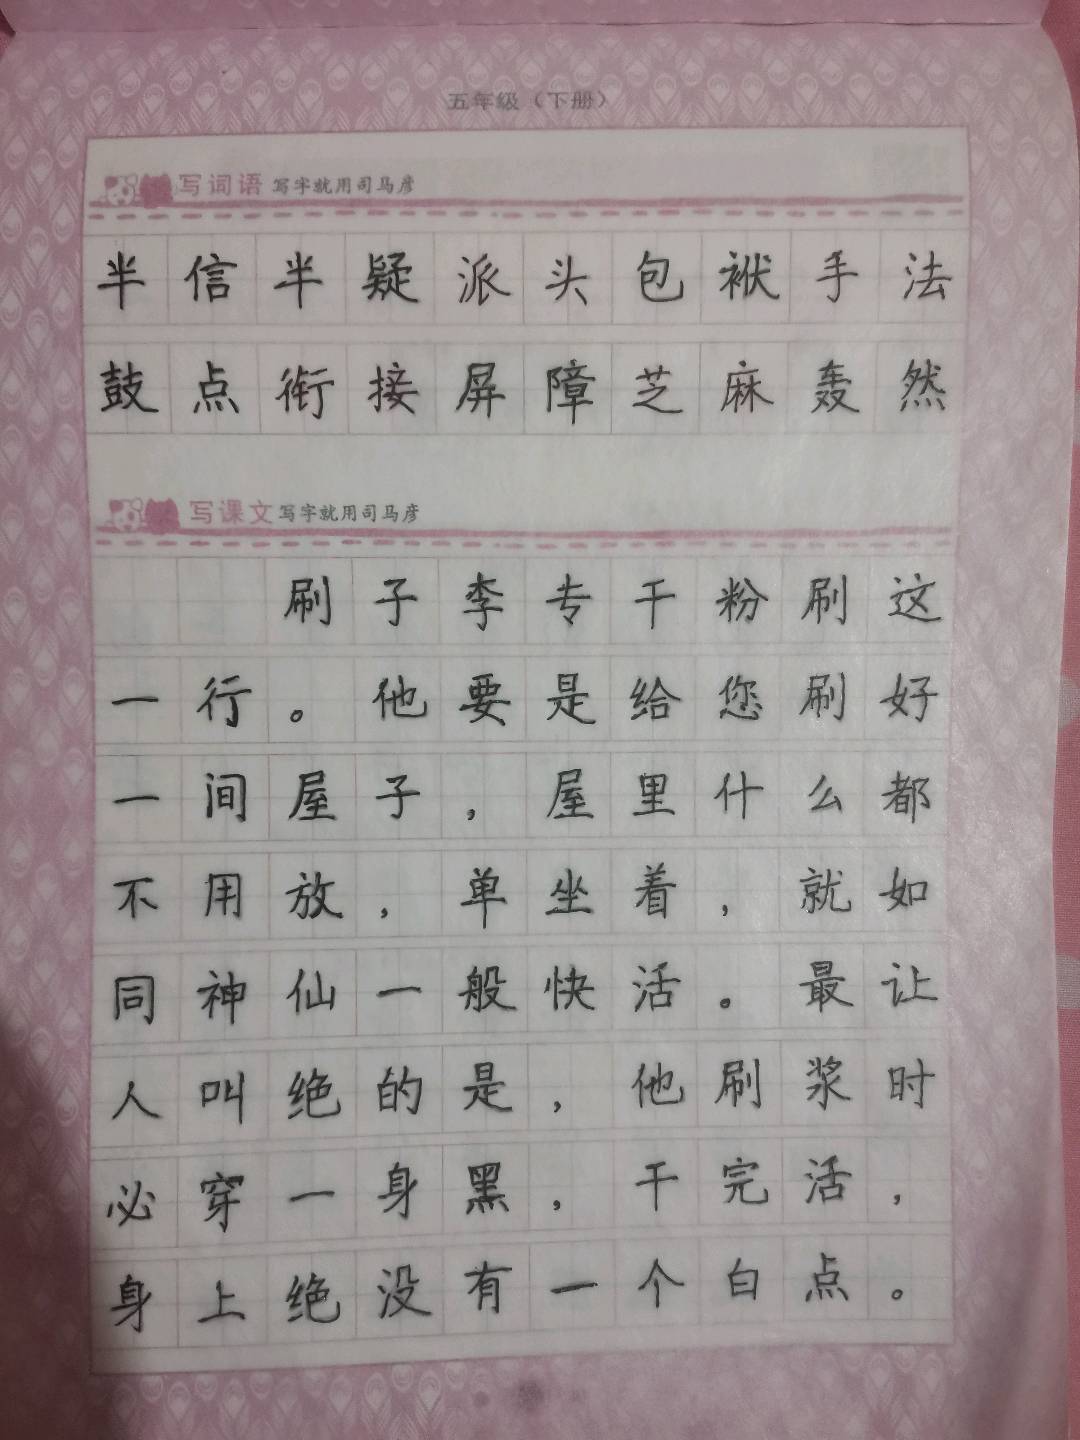 五年级（下册）
写词语 写字就用司马彦
半信半疑派头包袱手法
鼓点衔接屏障芝麻轰然
写课文 写字就用司马彦
刷子李专干粉刷这
一行。他要是给您刷好
一间屋子，屋里什么都
不用放，单坐着，就如
同神仙一般快活。最让
人叫绝的是，他刷浆时
必穿一身黑，干完活，
身上绝没有一个白点。